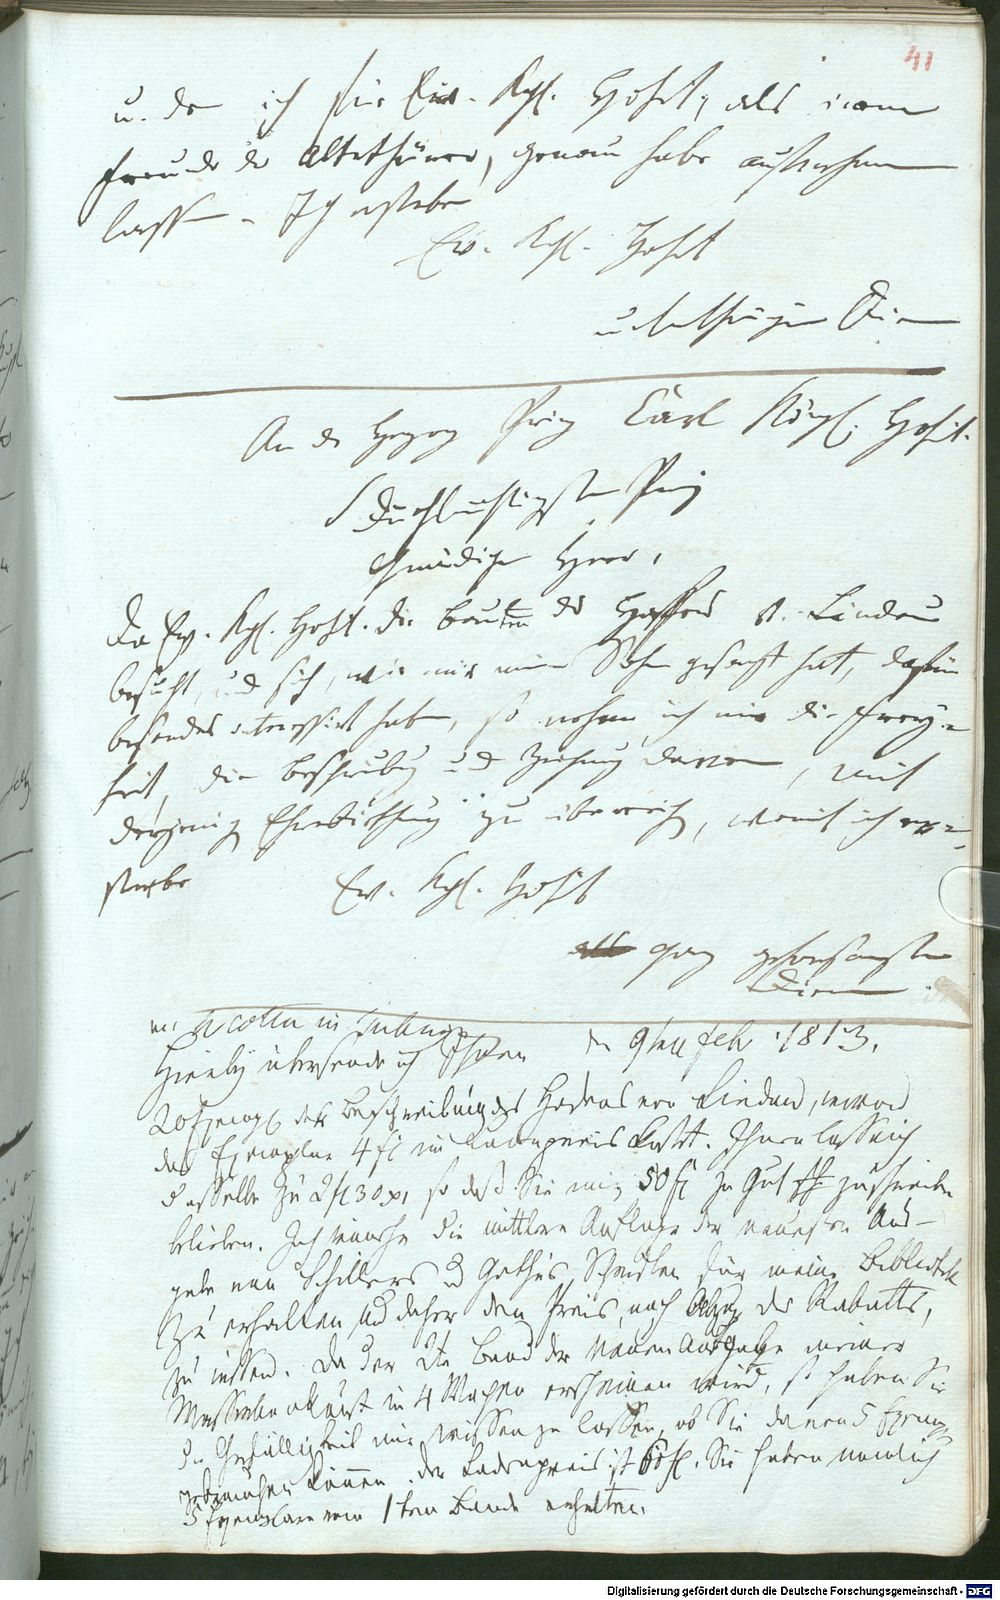 41
u. da ich für Ew. Kgl. Hoht, als einem
Freunde der Alterthümer, genau habe
lassen. Ich ersterbe
Ew. Kgl. Hoht
unterthänigster Diener
An des Herzog Prinz Carl Königl. Hoheit.
Durchlauchtigster Prinz
Gnädiger Herr,
Da Ew. Kgl. Hoht. die Bauten des Hafens v. Lindau
besucht, und sich, wie mir mein Sohn gesagt hat, dafür
besonders interessirt haben, so nehme ich mir die Frey=
heit, die Beschreibung und Zeichnung davon, mit
derjenigen Ehrerbietung zu überreichen, womit ich er=
sterbe
Ew. Kgl. Hoht
ganz gehorsamster
Diener
Cotta in Tübingen
Hierbey übersende ich Ihnen den 9ten Feb. 1813.
20 Exempl. der Beschreibung des Hafens von Lindau, wovon
das Exemplar 4 fl im Ladenpreis kostet. Ihnen lasse ich
dasselbe zu 2 fl 30 x, so daß Sie mir 50 fl zu Gut zuschreiben
belieben. Ich wünsche die mittlere Auflage der neuesten Aus-
gabe von Schillers und Göthes Schriften für meine Bibliothek
zu erhalten und daher den Preis, nach Abzug des Rabatts,
zu wissen. Da der 2te Band der neuen Ausgabe meiner
Wasserbaukunst in 4 Wochen erscheinen wird, so haben Sie
die Gefälligkeit mir wissen zu lassen, ob Sie davon 5 Exempl.
können. der Ladenpreis ist fl. Sie haben nämlich
5 Exemplare vom 1ten Bande erhalten.
Digitalisierung gefördert durch die Deutsche Forschungsgemeinschaft - DFG